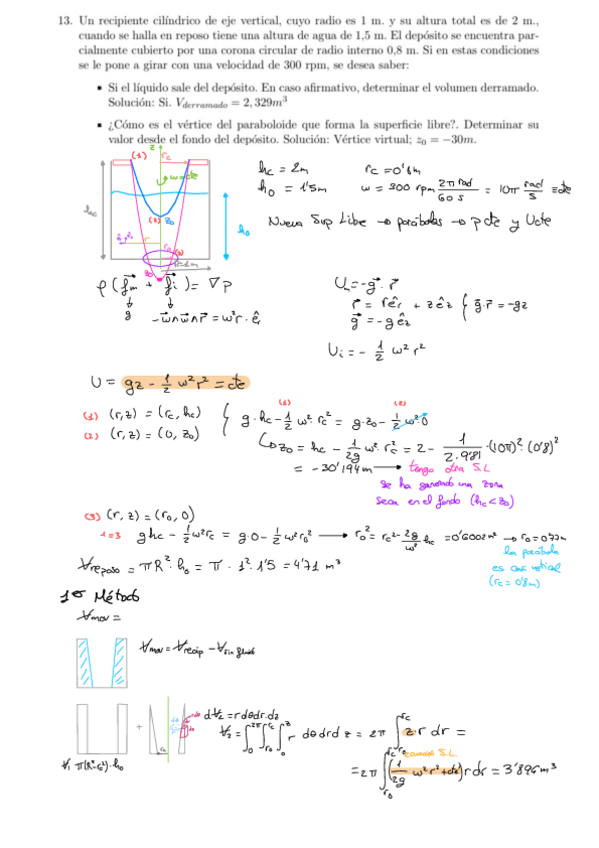 13. Un recipiente cilíndrico de eje vertical, cuyo radio es 1 m. y su altura total es de 2 m.,
cuando se halla en reposo tiene una altura de agua de 1,5 m. El depósito se encuentra par-
cialmente cubierto por una corona circular de radio interno 0,8 m. Si en estas condiciones
se le pone a girar con una velocidad de 300 rpm, se desea saber:
• Si el líquido sale del depósito. En caso afirmativo, determinar el volumen derramado.
Solución: Si. V_derramado = 2,329m³
• ¿Cómo es el vértice del paraboloide que forma la superficie libre?. Determinar su
valor desde el fondo del depósito. Solución: Vértice virtual; z₀ = −30m.
z
(1) rc
ω=cte
(2) z₀
hc
h₀
r
R=1m
z₀
hc = 2m rc = 0'8m
h₀ = 1'5m ω = 300 rpm 2π rad / 60 s = 10π rad/s = cte
Nueva Sup Libre → parábolas → p cte y U cte
ρ(f⃗m + f⃗i) = ∇p
g⃗ −ω⃗∧ω⃗∧r⃗ = ω²r·êr
U = −g⃗·r⃗
r⃗ = rêr + zêz { g⃗·r⃗ = −gz
g⃗ = −gêz
Ui = − 1/2 ω²r²
U = gz − 1/2 ω²r² = cte
(1) (2)
(1) (r,z) = (rc, hc) { g·hc − 1/2 ω²·rc² = g·z₀ − 1/2 ω²·0
(2) (r,z) = (0, z₀)
z₀ = hc − 1/2g ω²·rc² = 2 − 1/2·9'81 ·(10π)²·(0'8)²
= −30'194m → tengo otra S.L
se ha generado una zona
seca en el fondo (hc < z₀)
(3) (r, z) = (r₀, 0)
1=3 ghc − 1/2 ω²rc = g·0 − 1/2 ω²r₀² → r₀² = rc² − 2g/ω² hc = 0'6002m² → r₀ =
la parábola
es casi vertical
(rc = 0'8m)
V reposo = πR²·h₀ = π·1²·1'5 = 4'71 m³
1º Método
V mov =
V mov = V recip − V sin fluido
+
dV₂ = r dθ dr dz
V₂ = ∫₀^2π ∫r₀^rc ∫₀^z r dθ dr dz = 2π ∫r₀^rc z r dr =
ecuación S.L.
= 2π ∫r₀^rc (1/2g ω²r² + cte) r dr = 3'896m³
V₁ π(R²−rc²)·h₀